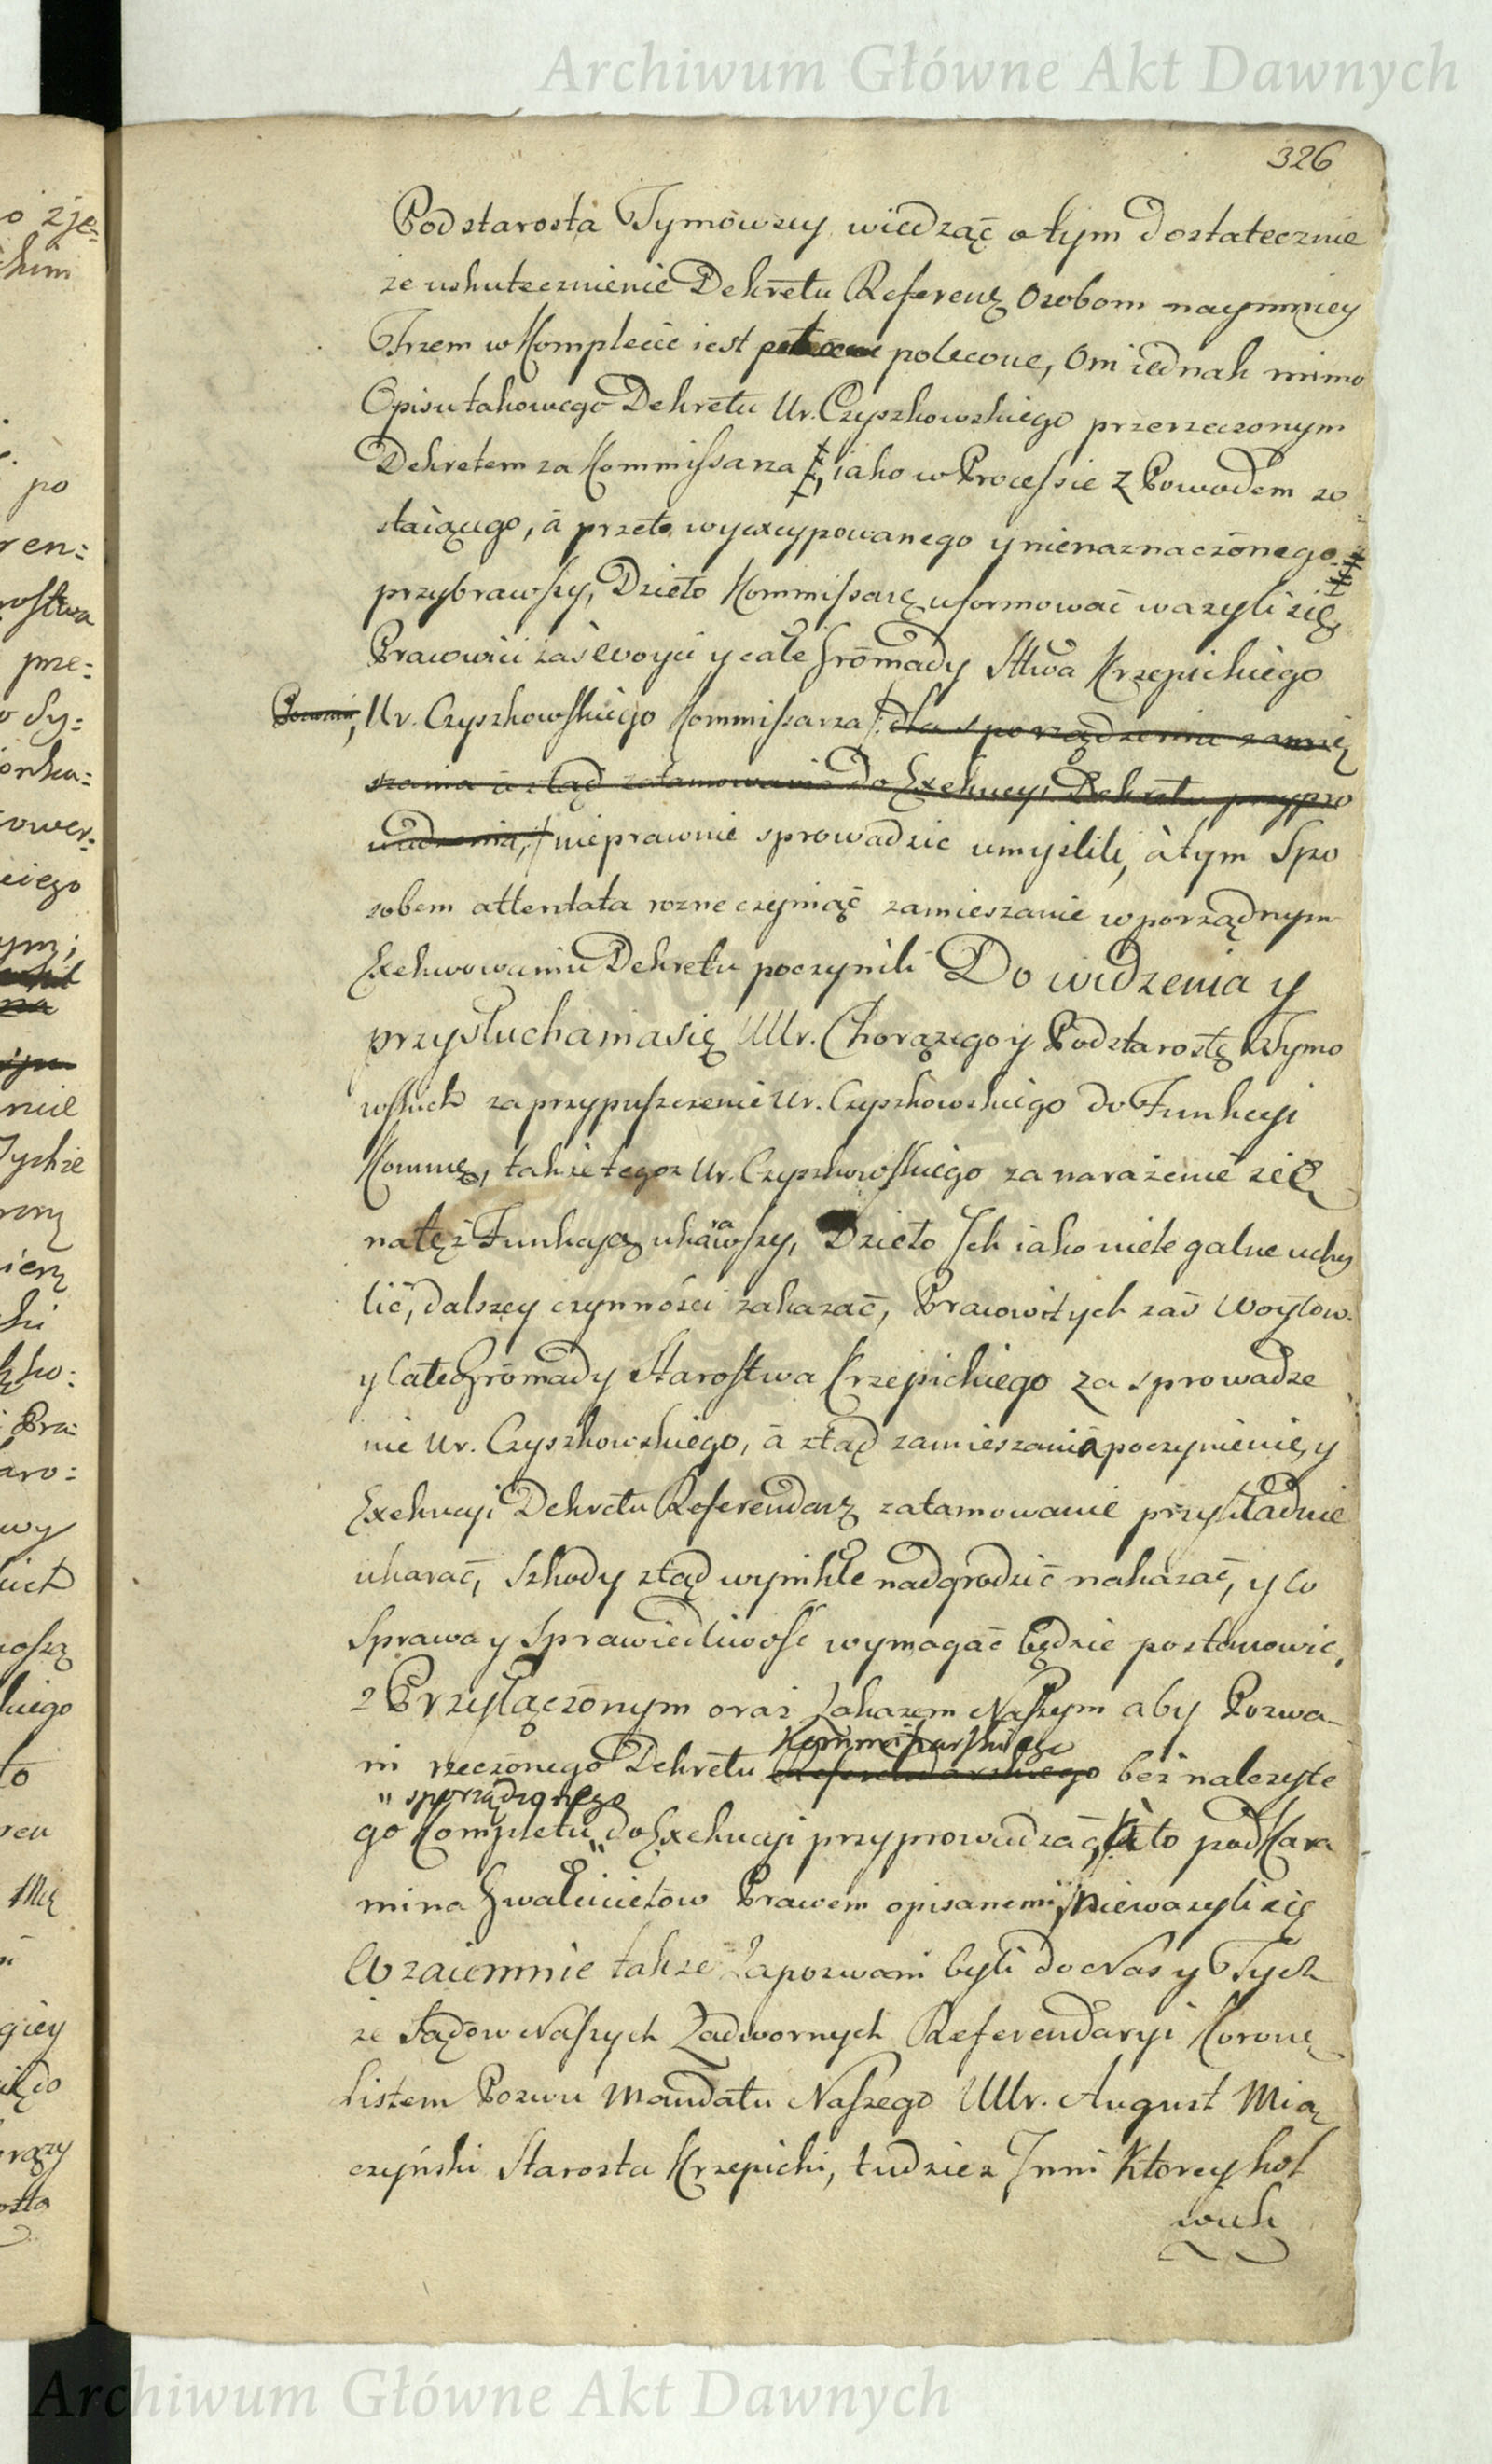 Archiwum Główne Akt Dawnych
326
Podstarosta Tymowscy wiedząc o tym dostatecznie
że uskutecznienie Dekretu Referen: Osobom naymniey
Trzem w Komplecie iest polecone, Oni iednak mimo
Opisu takowego Dekretu Ur. Czyszkowskiego przerzeczonym
Dekretem za Kommissarza, iako w Processie z Powodem zo
staiącego, á przeto wyexcypowanego y nienaznaczonego
przybrawszy, Dzieło Kommissarz. uformować ważyli się,
Pracowici zaś Woyci y całe Gromady Sttwa Krzepickiego
Ur. Czyszkowskiego Kommissarza /: dla sporządzenia zamię
szania á ztąd zatamowania do Exekucyi Dekretu przypro
wadzenia, :/ nieprawnie sprowadzic umyślili, á tym Spo
sobem attentata rozne czyniąc zamieszanie w porządnym
Exekwowaniu Dekretu poczynili Do widzenia y
przysłuchania się UUr. Chorążego y Podstarostę Tymo
wskich za przypuszczenie Ur. Czyszkowskiego do Funkcyi
Kommis, takze tegoz Ur. Czyszkowskiego za narażenie się
na tęż Funkcyą ukarawszy, Dzieło Ich iako nielegalne uchy
lić, dalszey czynności zakazać, Pracowitych zaś Woytow
y Całe Gromady Starostwa Krzepickiego za sprowadze
nie Ur. Czyszkowskiego, á ztąd zamieszania poczynienie, y
Exekucyi Dekretu Referendars. zatamowanie przykładnie
ukarać, Szkody ztąd wynikłe nadgrodzić nakazać, y co
Sprawa y Sprawiedliwość wymagać będzie postanowić,
z Przyłączonym oraz Zakazem Naszym aby Pozwa-
Kommissarskiego
ni rzeczonego Dekretu Referendarskiego bez nalezyte
" sporządzonego
go Kompletu " do Exekucyi przyprowadzać, á to pod Kara
mi na Gwałcicielow Prawem opisanemi, nieważyli się
Wzaiemnie takze Zapozwani byli do Nas y Tych
ze Sądow Naszych Zadwornych Referendaryi Koronę
Listem Pozwu Mandatu Naszego UUr. August Mią
czyński Starosta Krzepicki, tudziez Inni Ktorey kol
wiek
Archiwum Główne Akt Dawnych